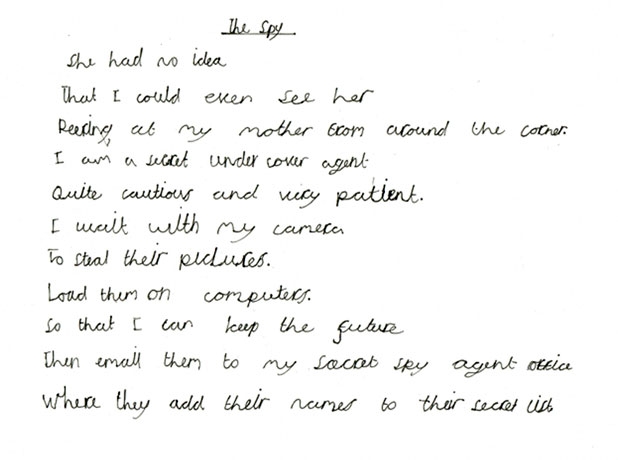 The Spy
She had no idea
That I could even see her
Peering at my mother from around the corner.
I am a secret under cover agent
Quite cautious and very patient.
I wait with my camera
To steal their pictures.
Load them on computers.
So that I can keep the future
Then email them to my secret spy agent office
Where they add their names to their secret list.